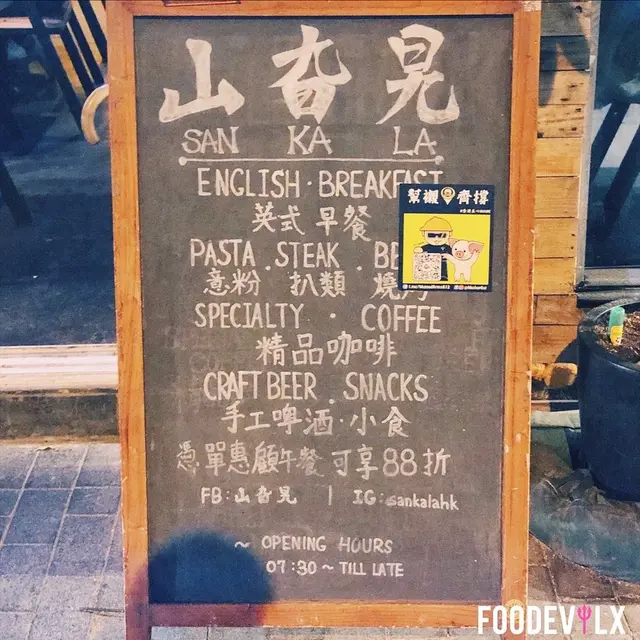 山 旮 晃
SAN KA LA
ENGLISH · BREAKFAST
英式早餐
PASTA . STEAK .
意粉 扒類 燒
SPECIALTY · COFFEE
精品咖啡
CRAFT BEER . SNACKS
手工啤酒·小食
憑單惠顧午餐可享88折
FB: 山旮晃 | IG: sankalahk
~ OPENING HOURS
07:30 ~ TILL LATE
幫襯 齊撐
FOODEVILX